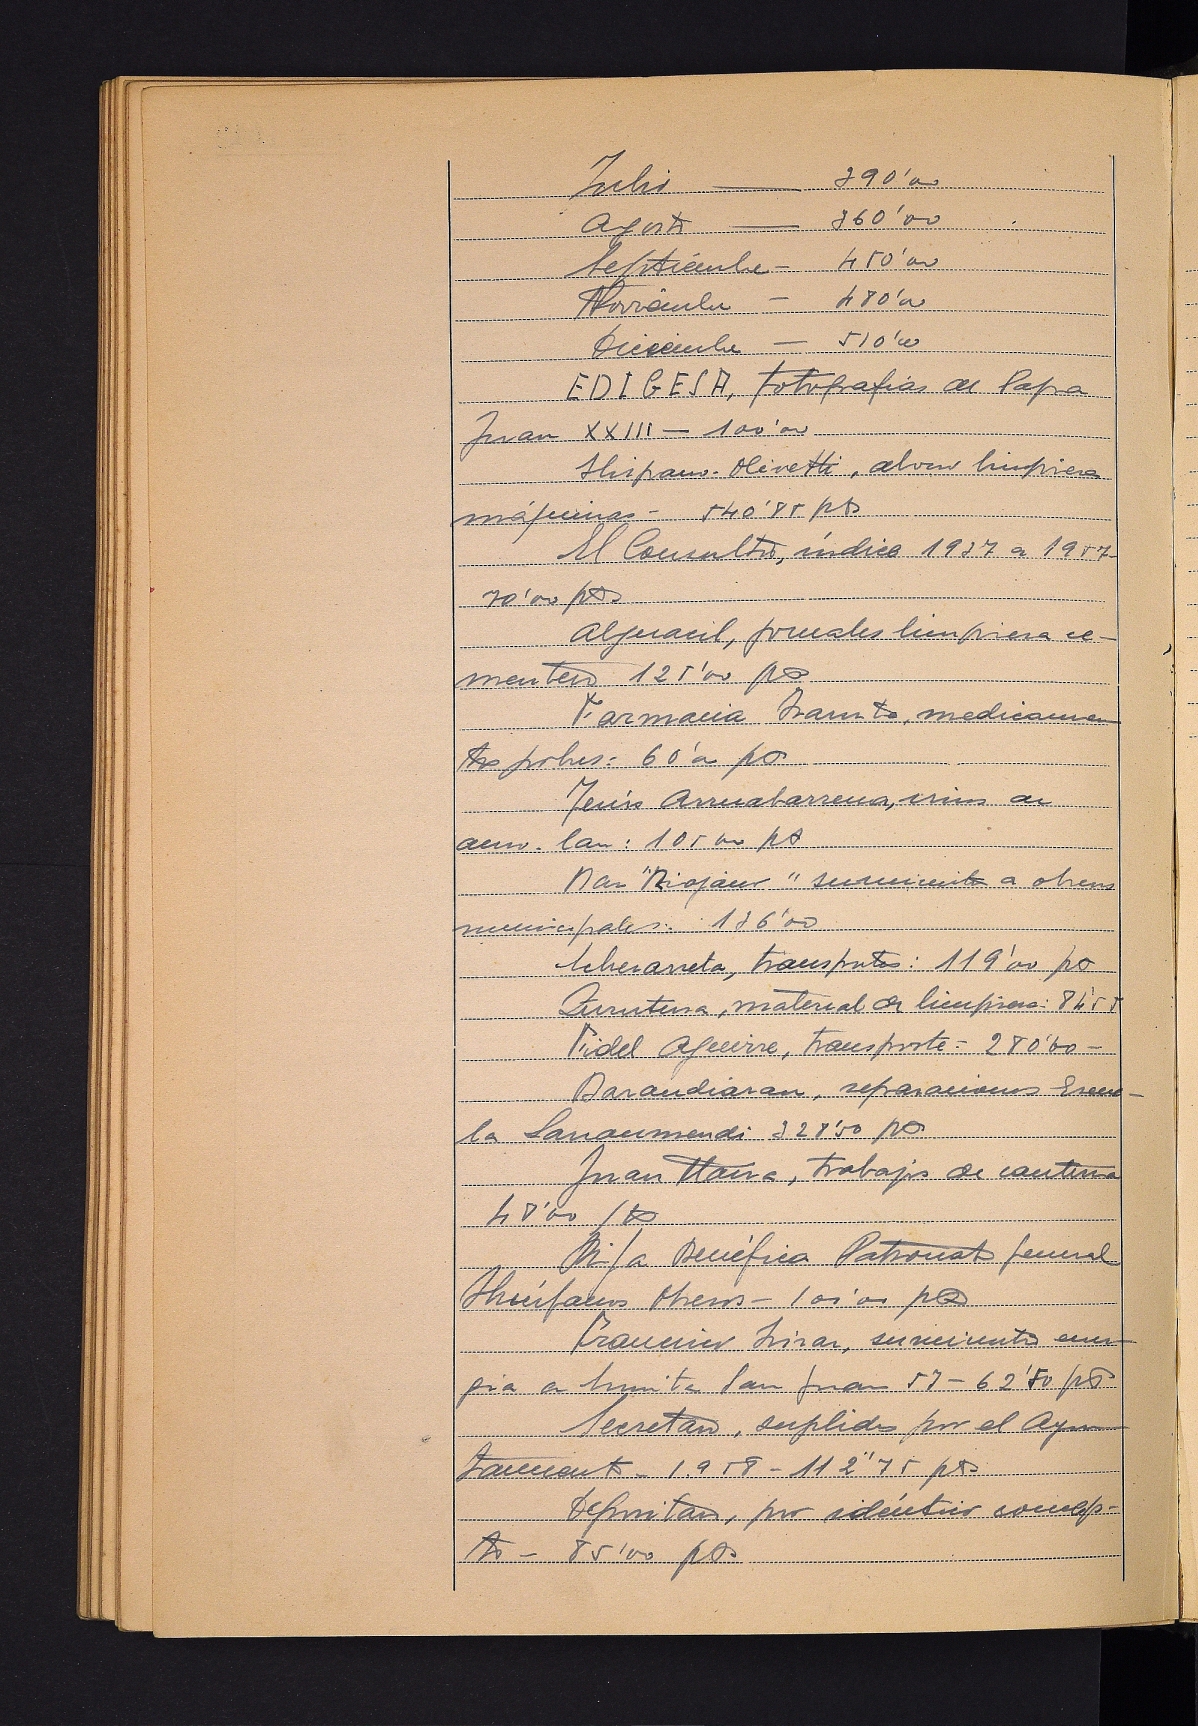 Julio — 390'00
Agosto — 360'00
Septiembre - 450'00
Noviembre - 480'00
Diciembre - 510'00
EDIGESA, fotografias de Papa
Juan XXIII - 100'00
Hispano-Olivetti, abono limpieza
máquinas - 540'85 pts
El Consultor, indice 1937 a 1957-
70'00 pts
Alguacil, jornales limpieza ce-
menterio 125'00 pts
Farmacia medicamen
tos pobres: 60'00 pts
Jesús Arruabarrena,
105'00 pts
Bar "Riojano" suministro a obreros
municipales: 136'00
transportes: 119'00 pts
material de limpieza: 84'55
Fidel Aguirre, transporte = 280'00 -
Barandiaran, reparaciones Escue-
la 328'50 pts
Juan trabajos de cantería
48'00 pts
Rifa Benéfica Patronato general
Huérfanos Obreros - 100'00 pts
Francisco suministro ener
gia a San Juan 57 - 62'50 pts
Secretario, suplidos por el Ayun
tamiento - 1.958 - 112'75 pts
Depositario, por idéntico concep-
to - 85'00 pts